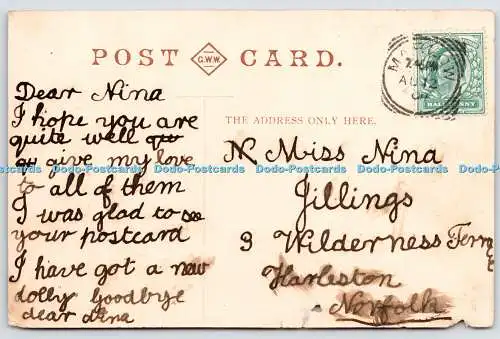 POST CARD.
G.W.W.
HALFPENNY
THE ADDRESS ONLY HERE.
Dear Nina
I hope you are
quite well
give my love
to all of them
I was glad to see
your postcard
I have got a new
dolly Goodbye
dear Nina
Miss Nina
Jillings
3 Wilderness
Harleston
Norfolk
Dads-Postcards Dads-Postcards Dads-Postcards Dads-Postcards